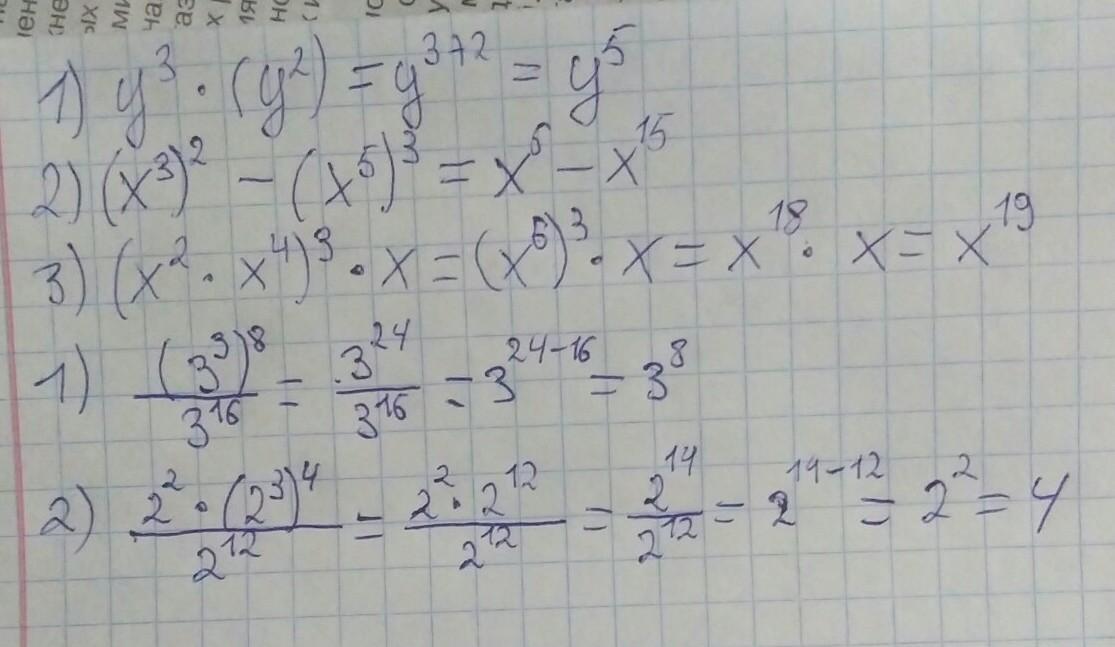 1) y³ · (y²) = y³⁺² = y⁵
2) (x³)² − (x⁵)³ = x⁶ − x¹⁵
3) (x² · x⁴)³ · x = (x⁶)³ · x = x¹⁸ · x = x¹⁹
1) (3³)⁸/3¹⁶ = 3²⁴/3¹⁶ = 3²⁴⁻¹⁶ = 3⁸
2) 2² · (2³)⁴/2¹² = 2² · 2¹²/2¹² = 2¹⁴/2¹² = 2¹⁴⁻¹² = 2² = 4